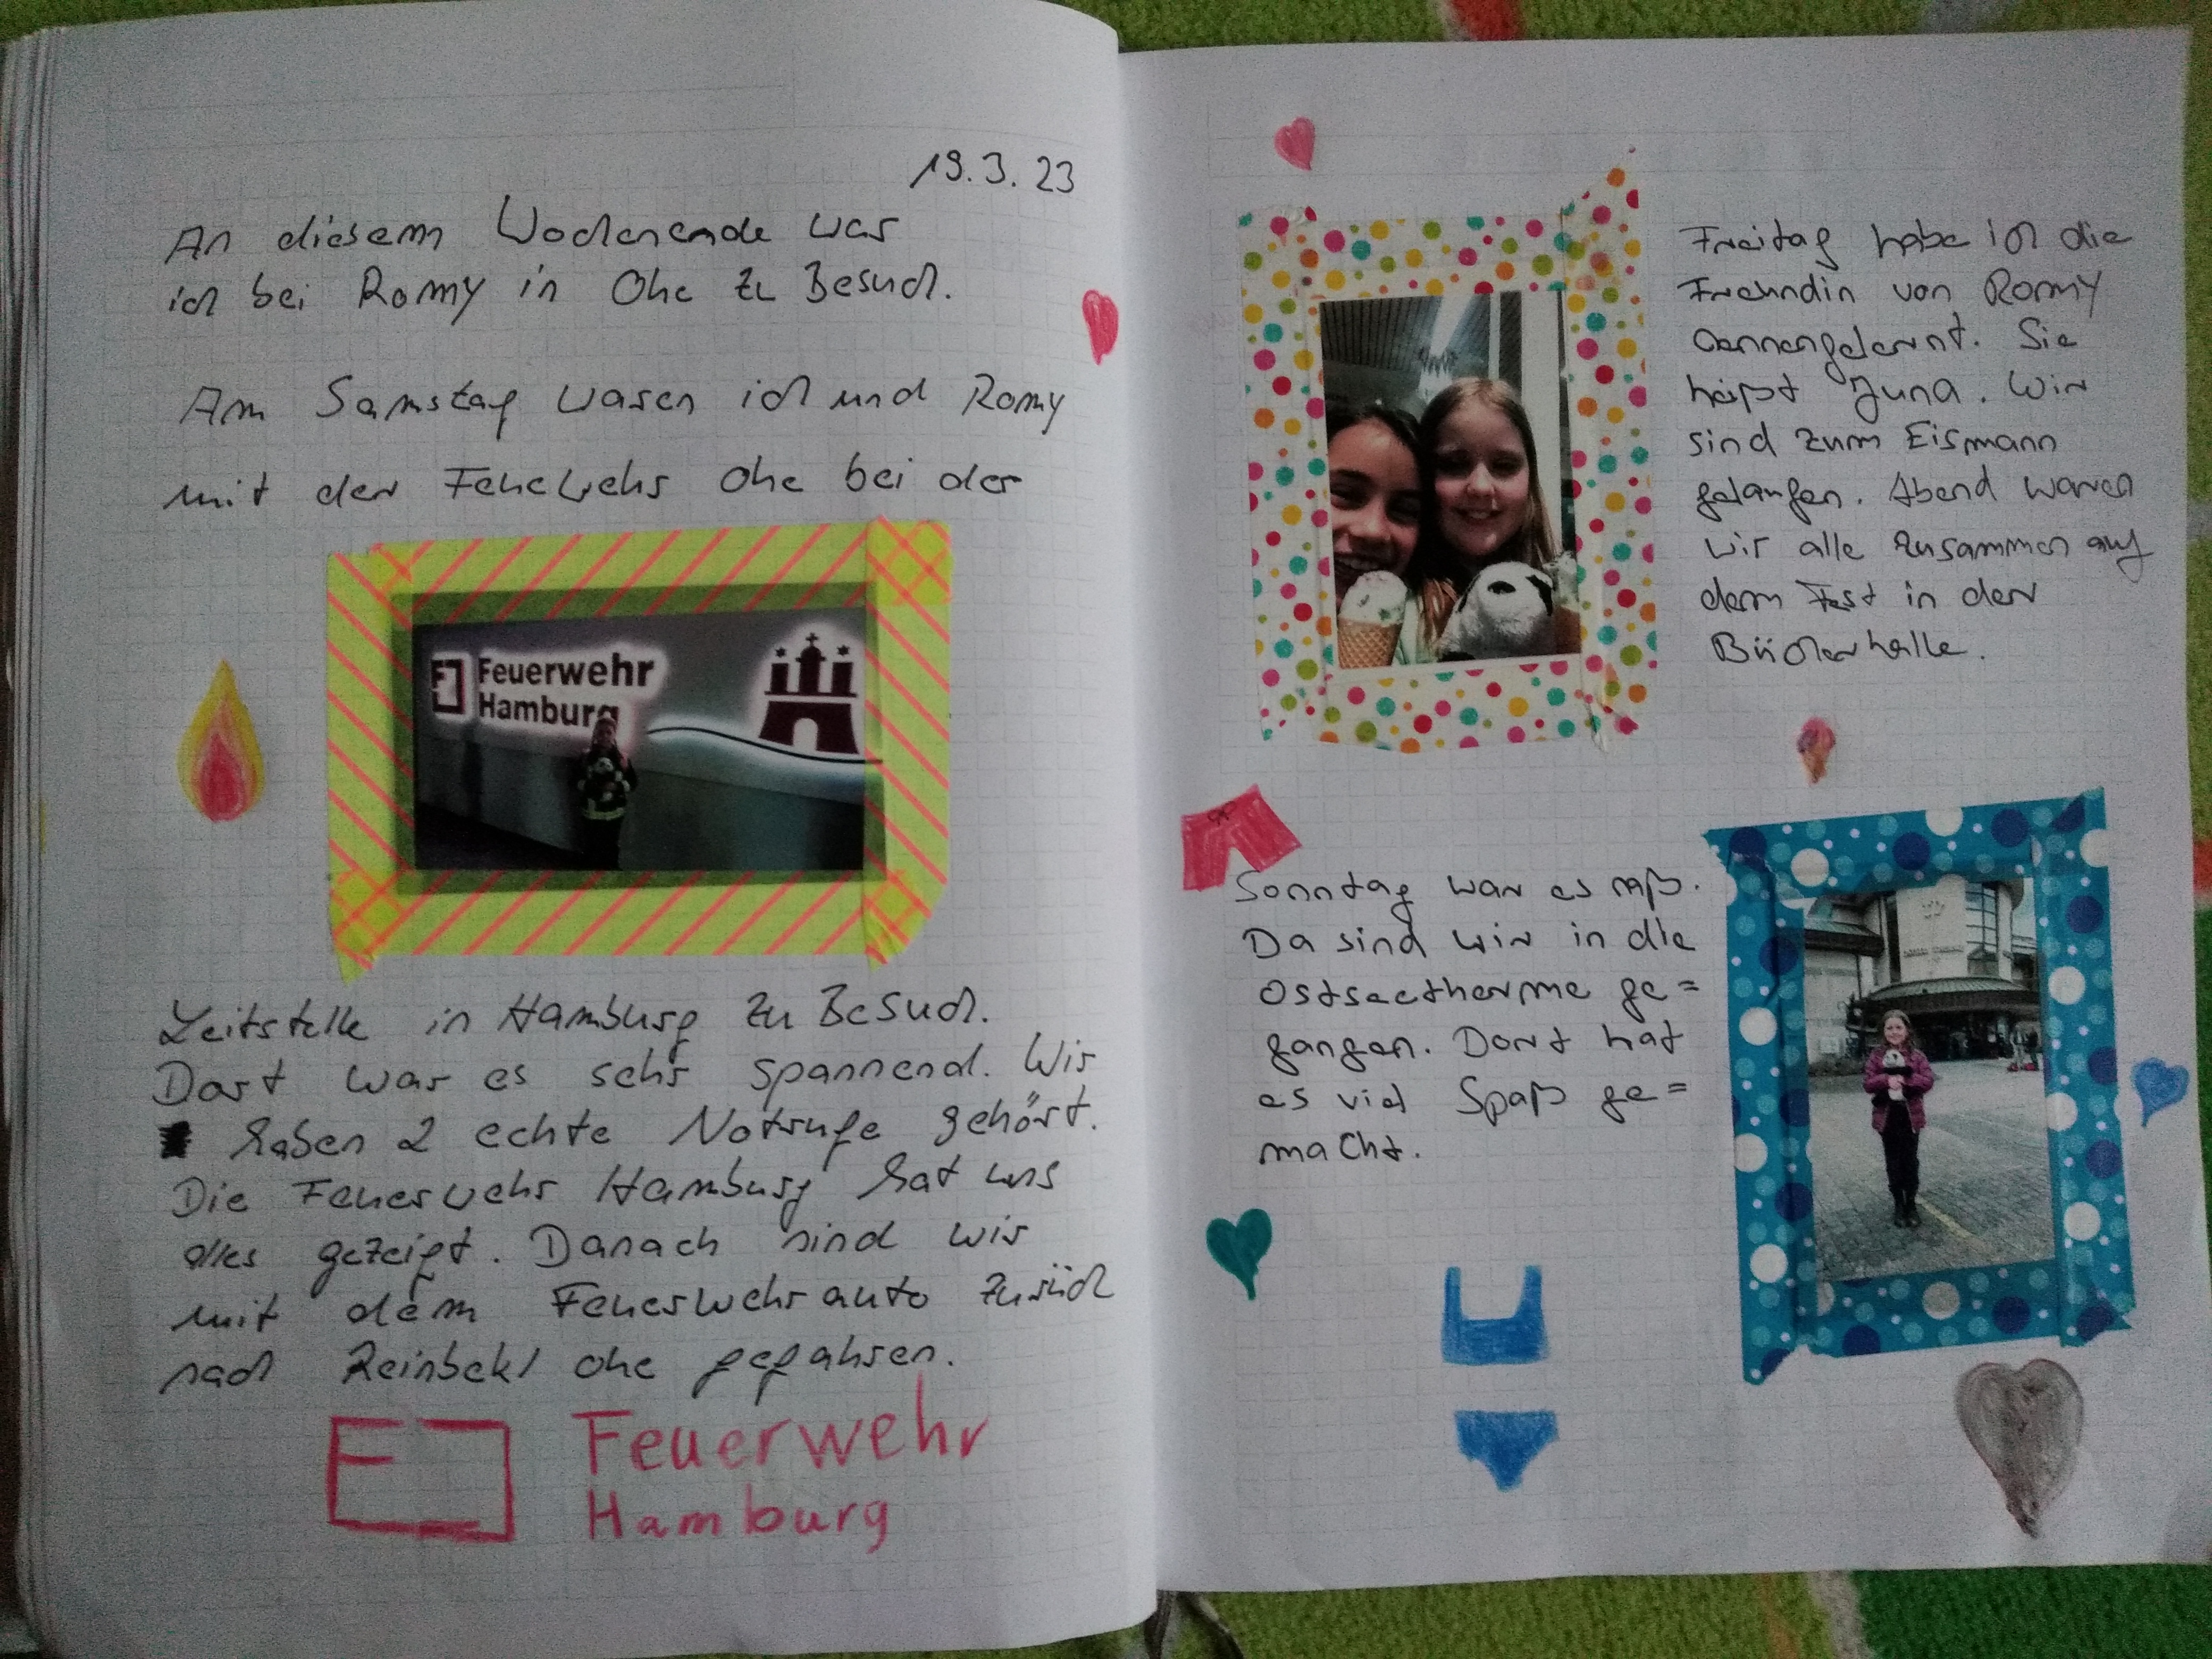 19.3.23
An diesem Wochenende war
ich bei Romy in Ohe zu Besuch.
Am Samstag waren ich und Romy
mit der Feuerwehr Ohe bei der
Feuerwehr
Hamburg
Leitstelle in Hamburg zu Besuch.
Dort war es sehr spannend. Wir
haben 2 echte Notrufe gehört.
Die Feuerwehr Hamburg hat uns
alles gezeigt. Danach sind wir
mit dem Feuerwehrauto zurück
nach Reinbek/Ohe gefahren.
F Feuerwehr
Hamburg
Freitag habe ich die
Freundin von Romy
kennengelernt. Sie
heißt Juna. Wir
sind zum Eismann
gelaufen. Abend waren
wir alle zusammen auf
dem Fest in der
Bücherhalle.
Sonntag war es naß.
Da sind wir in die
Ostseetherme ge=
gangen. Dort hat
es viel Spaß ge=
macht.